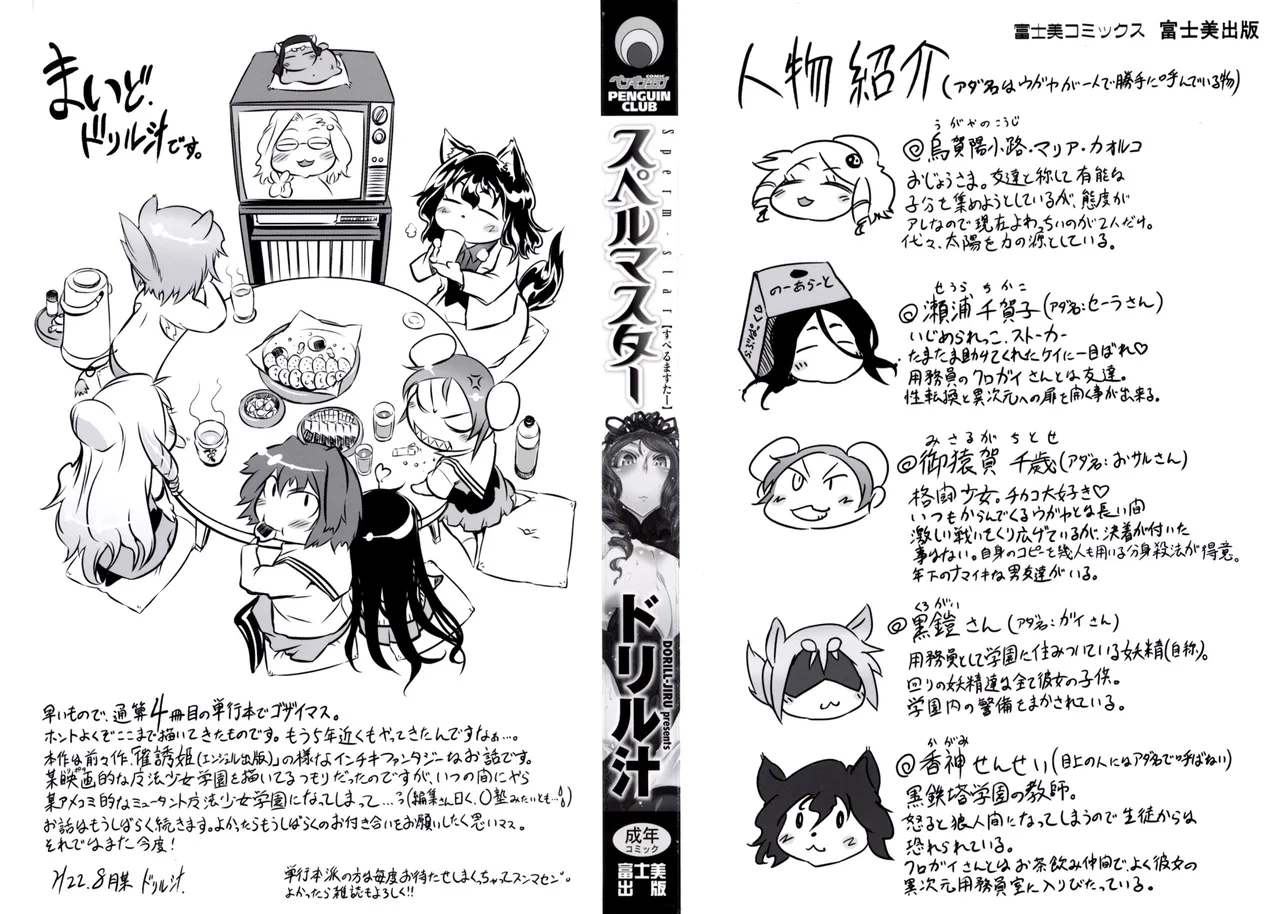 まいど、
ドリル汁です。
早いもので、通算4冊目の単行本でゴザイマス。
ホントよくでここまで描いてきたものです。もう5年近くもやってきたんですなぁ…。
本作は前々作、「催誘姫(エンジェル出版)」の様なインチキファンタジーなお話です。
某映画的な魔法少女学園を描いてるつもりだったのですが、いつの間にやら
某アメコミ的なミュータント魔法少女学園になってしまって…う(編集さん曰く、〇塾みたいとも…)
お話はもうしばらく続きます。よかったらもうしばらくのお付き合いをお願いしたく思いマス。
それではまた今度!
H22.8月某 ドリル汁.
単行本派の方は毎度お待たせしまくっちゃってスンマセン。
よかったら雑誌もよろしく!!
COMIC
ペンギンクラブ
PENGUIN
CLUB
Sperm・star
スペルマスター
【すぺるますたー】
ドリル汁
DORILL-JIRU presents
成年
コミック
富士美
出版
富士美コミックス 富士美出版
人物紹介(アダ名はウガヤが一人で勝手に呼んでいる物)
うがやのこうじ
@烏賀陽小路・マリア・カオルコ
おじょうさま。友達と称して有能な
子分を集めようとしているが、態度が
アレなので現在よわっちいのが2人だけ。
代々、太陽を力の源としている。
のーあらーと
せうら ちかこ
@瀬浦千賀子(アダ名:セーラさん)
いじめられっこ、ストーカー
たまたま助けてくれたケイに一目ぼれ♡
用務員のクロガイさんとは友達。
性転換と異次元への扉を開く事が出来る。
みさるが ちとせ
@御猿賀 千歳(アダ名:おサルさん)
格闘少女。チカコ大好き♡
いつもからんでくるウガヤとは長い間
激しい戦いをくり広げているが、決着が付いた
事はない。自身のコピーを幾人も用いる分身殺法が得意。
年下のナマイキな男友達がいる。
くろがい
@黒鎧さん(アダ名:ガイさん)
用務員として学園に住みついている妖精(自称)。
回りの妖精達は全て彼女の子供。
学園内の警備をまかされている。
かがみ
@香神せんせい(目上の人にはアダ名で呼ばない)
黒鉄塔学園の教師。
怒ると狼人間になってしまうので生徒からは
恐れられている。
クロガイさんとはお茶飲み仲間で、よく彼女の
異次元用務員室に入りびたっている。